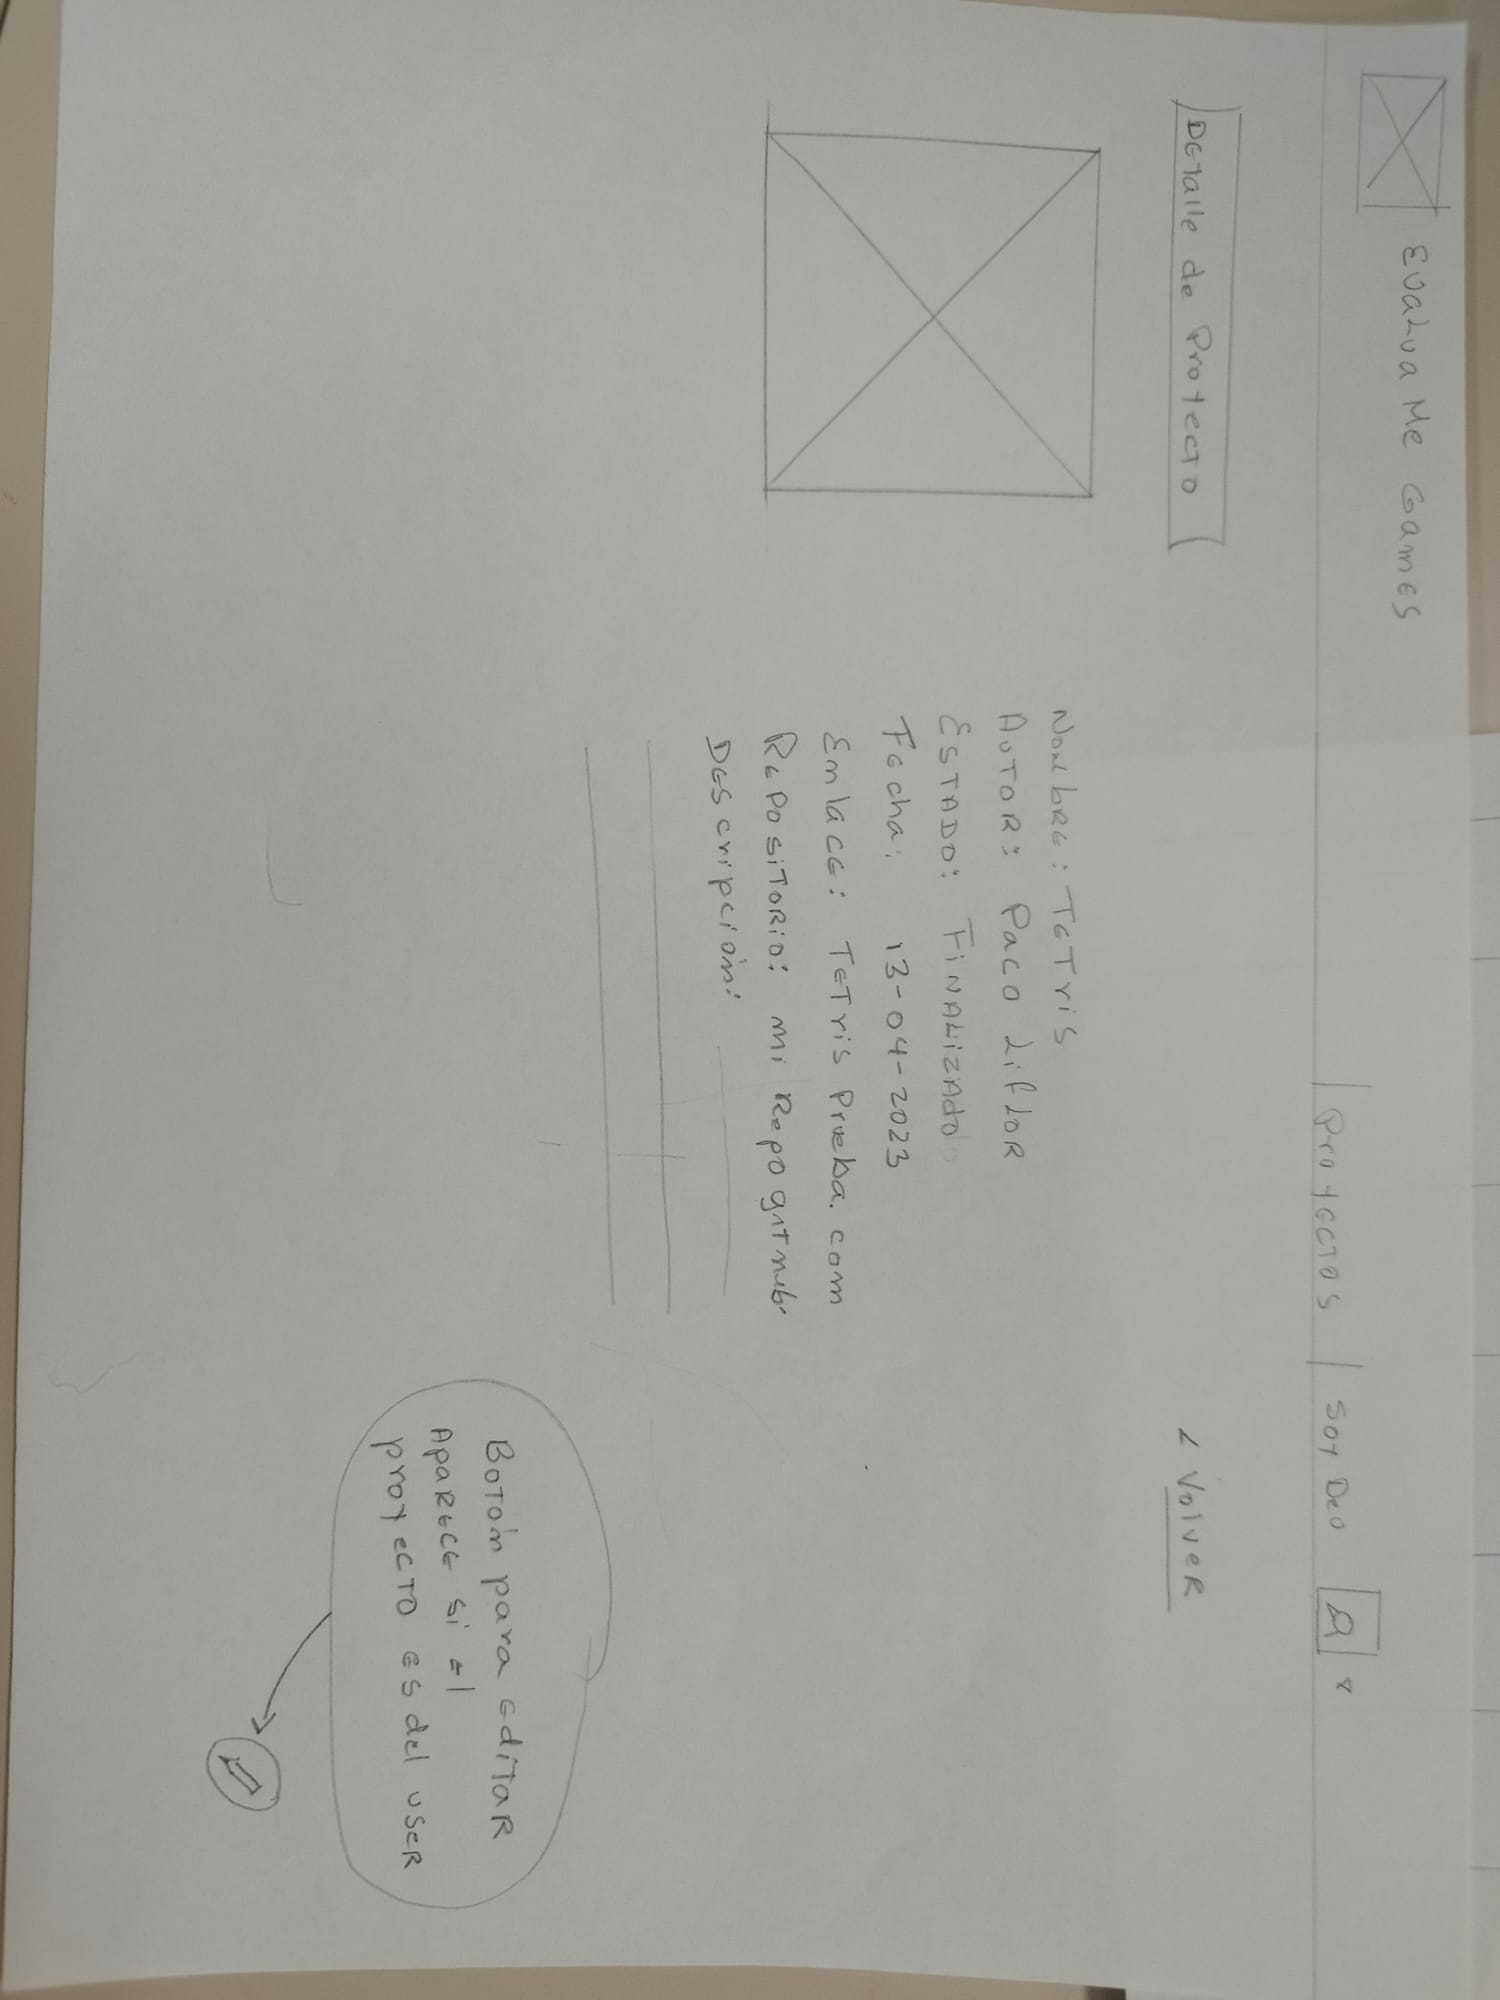 EvaLua Me Games
Proyectos
Soy Deo
Detalle de Proyecto
< Volver
Nombre: Tetris
Autor: Paco Liflor
Estado: Finalizado
Fecha: 13-04-2023
Enlace: Tetris Prueba.com
Repositorio: mi Repo
Descripción:
Botón para editar
Aparece si el
proyecto es del user